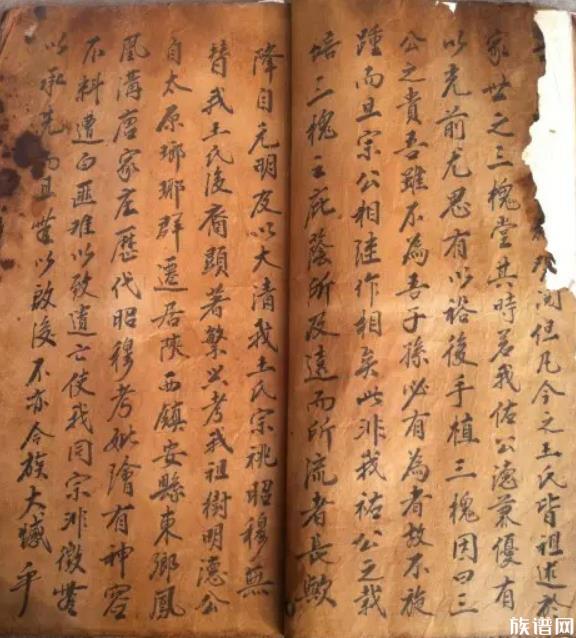 閱但凡今之王氏皆祖述於
家世之三槐堂其時若我佑公德業優有
以克前尤思有以裕後手植三槐因曰三
公之貴吾雖不為吾子孫必有為者故不旋
踵而旦宗公相陸作相矣此非我祐公之栽
培三槐之庇蔭所及遠而所流者長歟
降自元明及以大清我王氏宗祧昭穆無
替我王氏後裔顕著繁兴考我祖樹明德公
自太原瑯琊群遷居陝西鎮安縣東鄉鳳
凰溝唐家庄歷代昭穆考妣隂有神容
不料遭白匪难以致遺亡使我同宗非徵
以承先而且無以啟後不亦合族大憾乎
族谱网